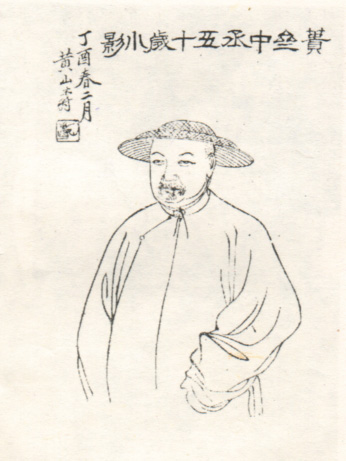 蕢亝中丞五十歲小影
丁酉春二月
黃山壽